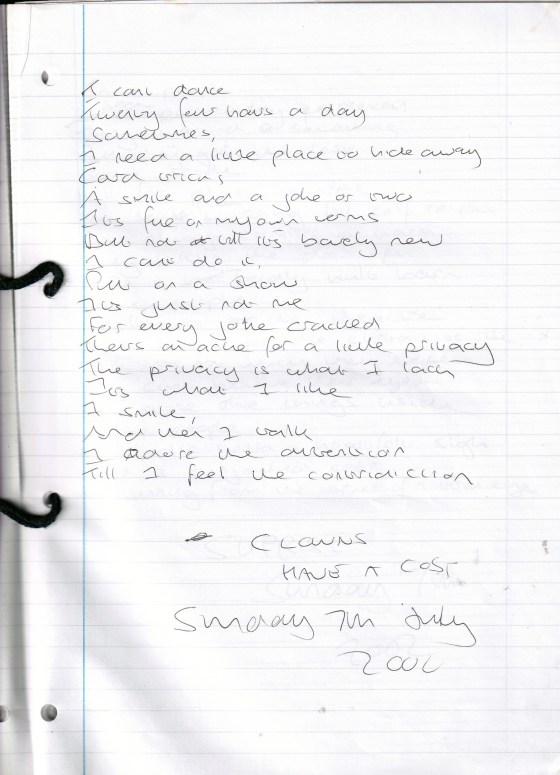 I cant dance
Twenty four hours a day
Sometimes,
I need a little place to hide away
Card tricks
A smile and a joke or two
Its fine on my own terms
But not its barely new
I cant do it,
Put on a show
Its just not me
For every joke cracked
Theirs an ache for a little privacy
The privacy is what I lack
Its what I like
I smile,
And then I walk
I adore the attention
Till I feel the contridiction
CLOWNS
HAVE A COST
Sunday 7th July
2002